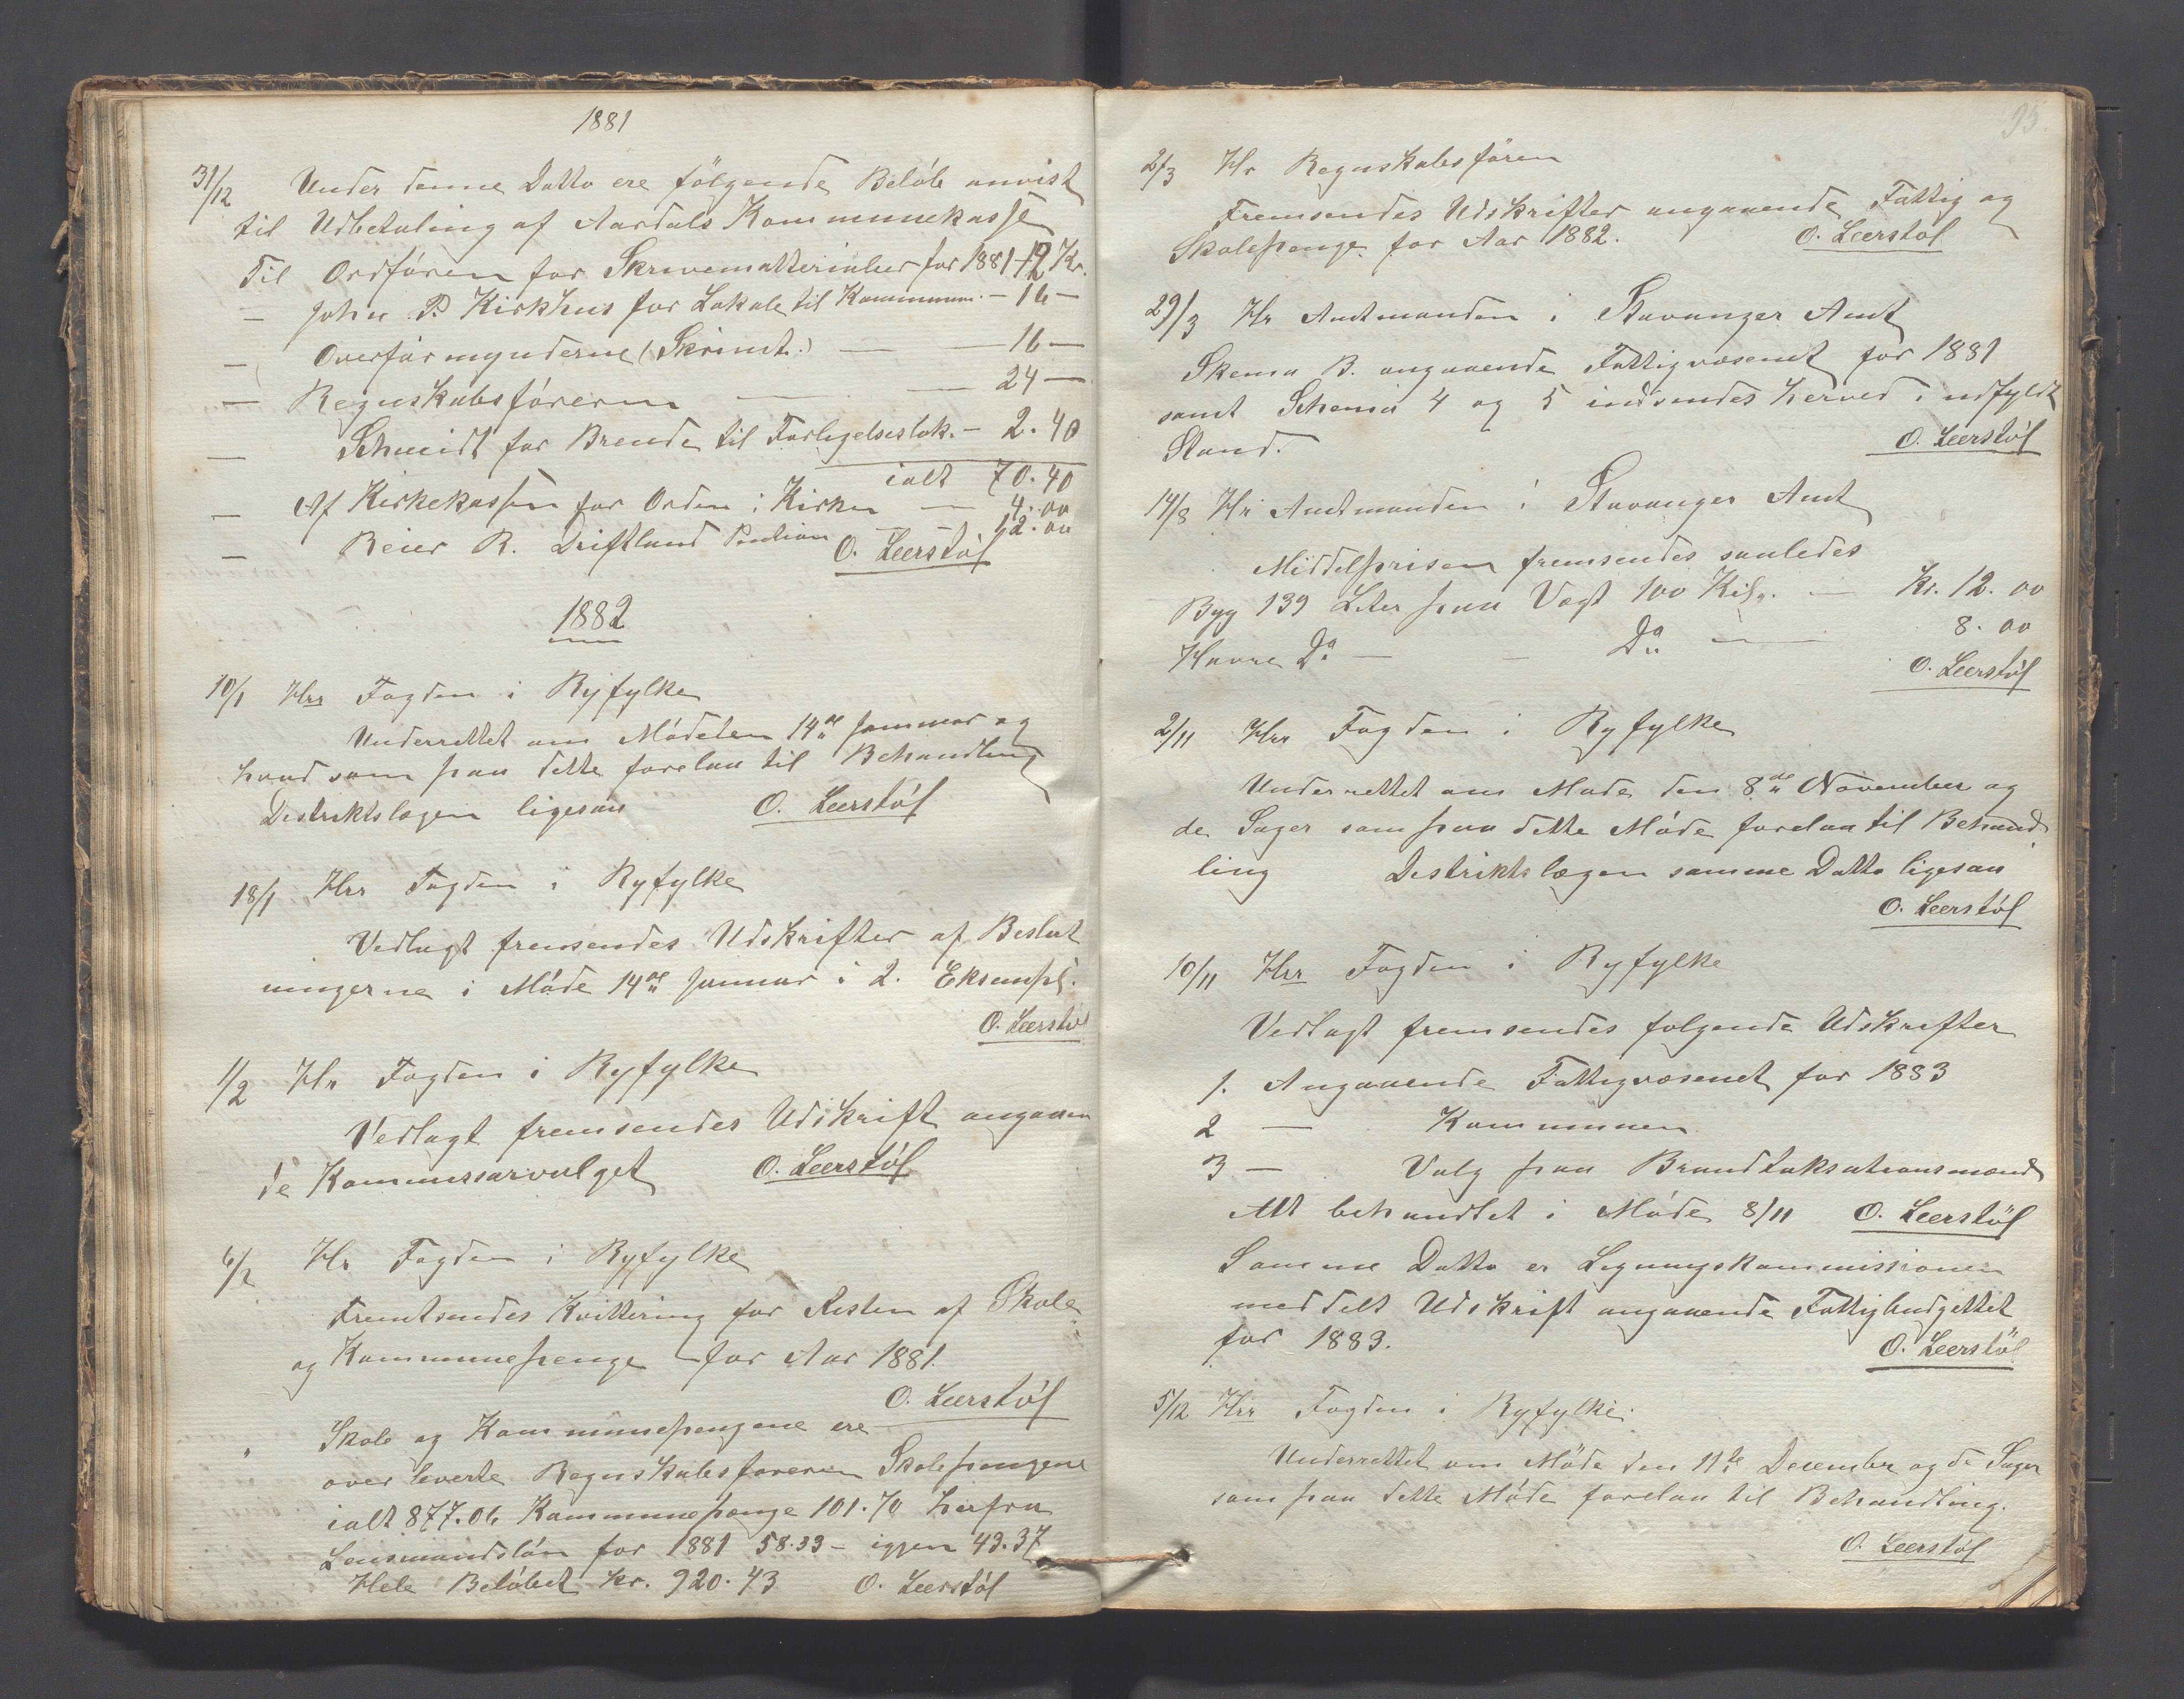 1881
31/12 Under denne Datto ere fölgende Belöb anvist
til Udbetaling af Aardals Kommunekasse
Til Ordføren for Skrivematterialier for 1881 - 12 Kr.
— John P. Kirkhus for Lokale til Kommunen. - 16 —
— Overformynderne (Skrimt.) — — 16 —
— Regnskabsföreren — — 24 —
— Schmidt for Brende til Forligelseslok. - 2.40
ialt 70.40
— Af Kirkekassen for Orden i Kirken — 4.00
— Reier R. Driftland Pention — 12.00
O. Leerstöl
1882
10/1 Hrr Fogden i Ryfylke
Underrettet om Mödeten 14de Januar og
hvad som paa dette forelaa til Behandling
Destriktslægen ligesaa O. Leerstöl
18/1 Hrr Fogden i Ryfylke
Vedlagt fremsendes Udskrifter af Beslut
ningerne i Möde 14de Januar i 2. Eksempl.
O. Leerstöl
1/2 Hr Fogden i Ryfylke
Vedlagt fremsendes Udskrift angaaen
de Kommissarvalget O. Leerstöl
6/2 Hr Fogden i Ryfylke
Fremtsendes Kvittering for Resten af Skole
og Kommunepenge for Aar 1881.
O. Leerstöl
" Skole og Kommunepengene ere
over leverte Regnskabsföreren Skolepengene
ialt 877.06 Kommunepenge 101.70 herfra
Lensmandslön for 1881 58.33 - igjen 43.37
Hele Belöbet kr. 920.43 O. Leerstöl
93.
2/3 Hr Regnskabsfören
Fremsendes Udskrifter angaaende Fattig og
Skolepenge for Aar 1882. O. Leerstöl
29/3 Hr Amtmanden i Stavanger Amt
Skema B. angaaende Fattigvæsenet for 1881
samt Schema 4 og 5 indsendes herved i udfyldt
Stand. O. Leerstöl
14/8 Hr Amtmanden i Stavanger Amt
Middelprisen fremsendes saaledes
Byg 139 Liter paa Vægt 100 Kilo. — Kr. 12.00
Havre Do — — Do — 8.00
O. Leerstöl
2/11 Hrr Fogden i Ryfylke
Underrettet om Möde den 8de November og
de Sager som paa dette Möde forelaa til Behand
ling Destriktslægen samme Datto ligesaa
O. Leerstöl
10/11 Hrr Fogden i Ryfylke
Vedlagt fremsendes folgende Udskrifter
1. Angaaende Fattigvæsenet for 1883
2 — Kommunen
3 — Valg paa Brandtaksationsmænd
Alt behandlet i Möde 8/11 O. Leerstöl
Samme Datto er Legningskommissionen
meddelt Udskrift angaaende Fattigbudgettet
for 1883. O. Leerstöl
5/12 Hrr Fogden i Ryfylke.
Underrettet om Möde den 11te December og de Sager
som paa dette Möde forelaa til Behandling.
O. Leerstöl